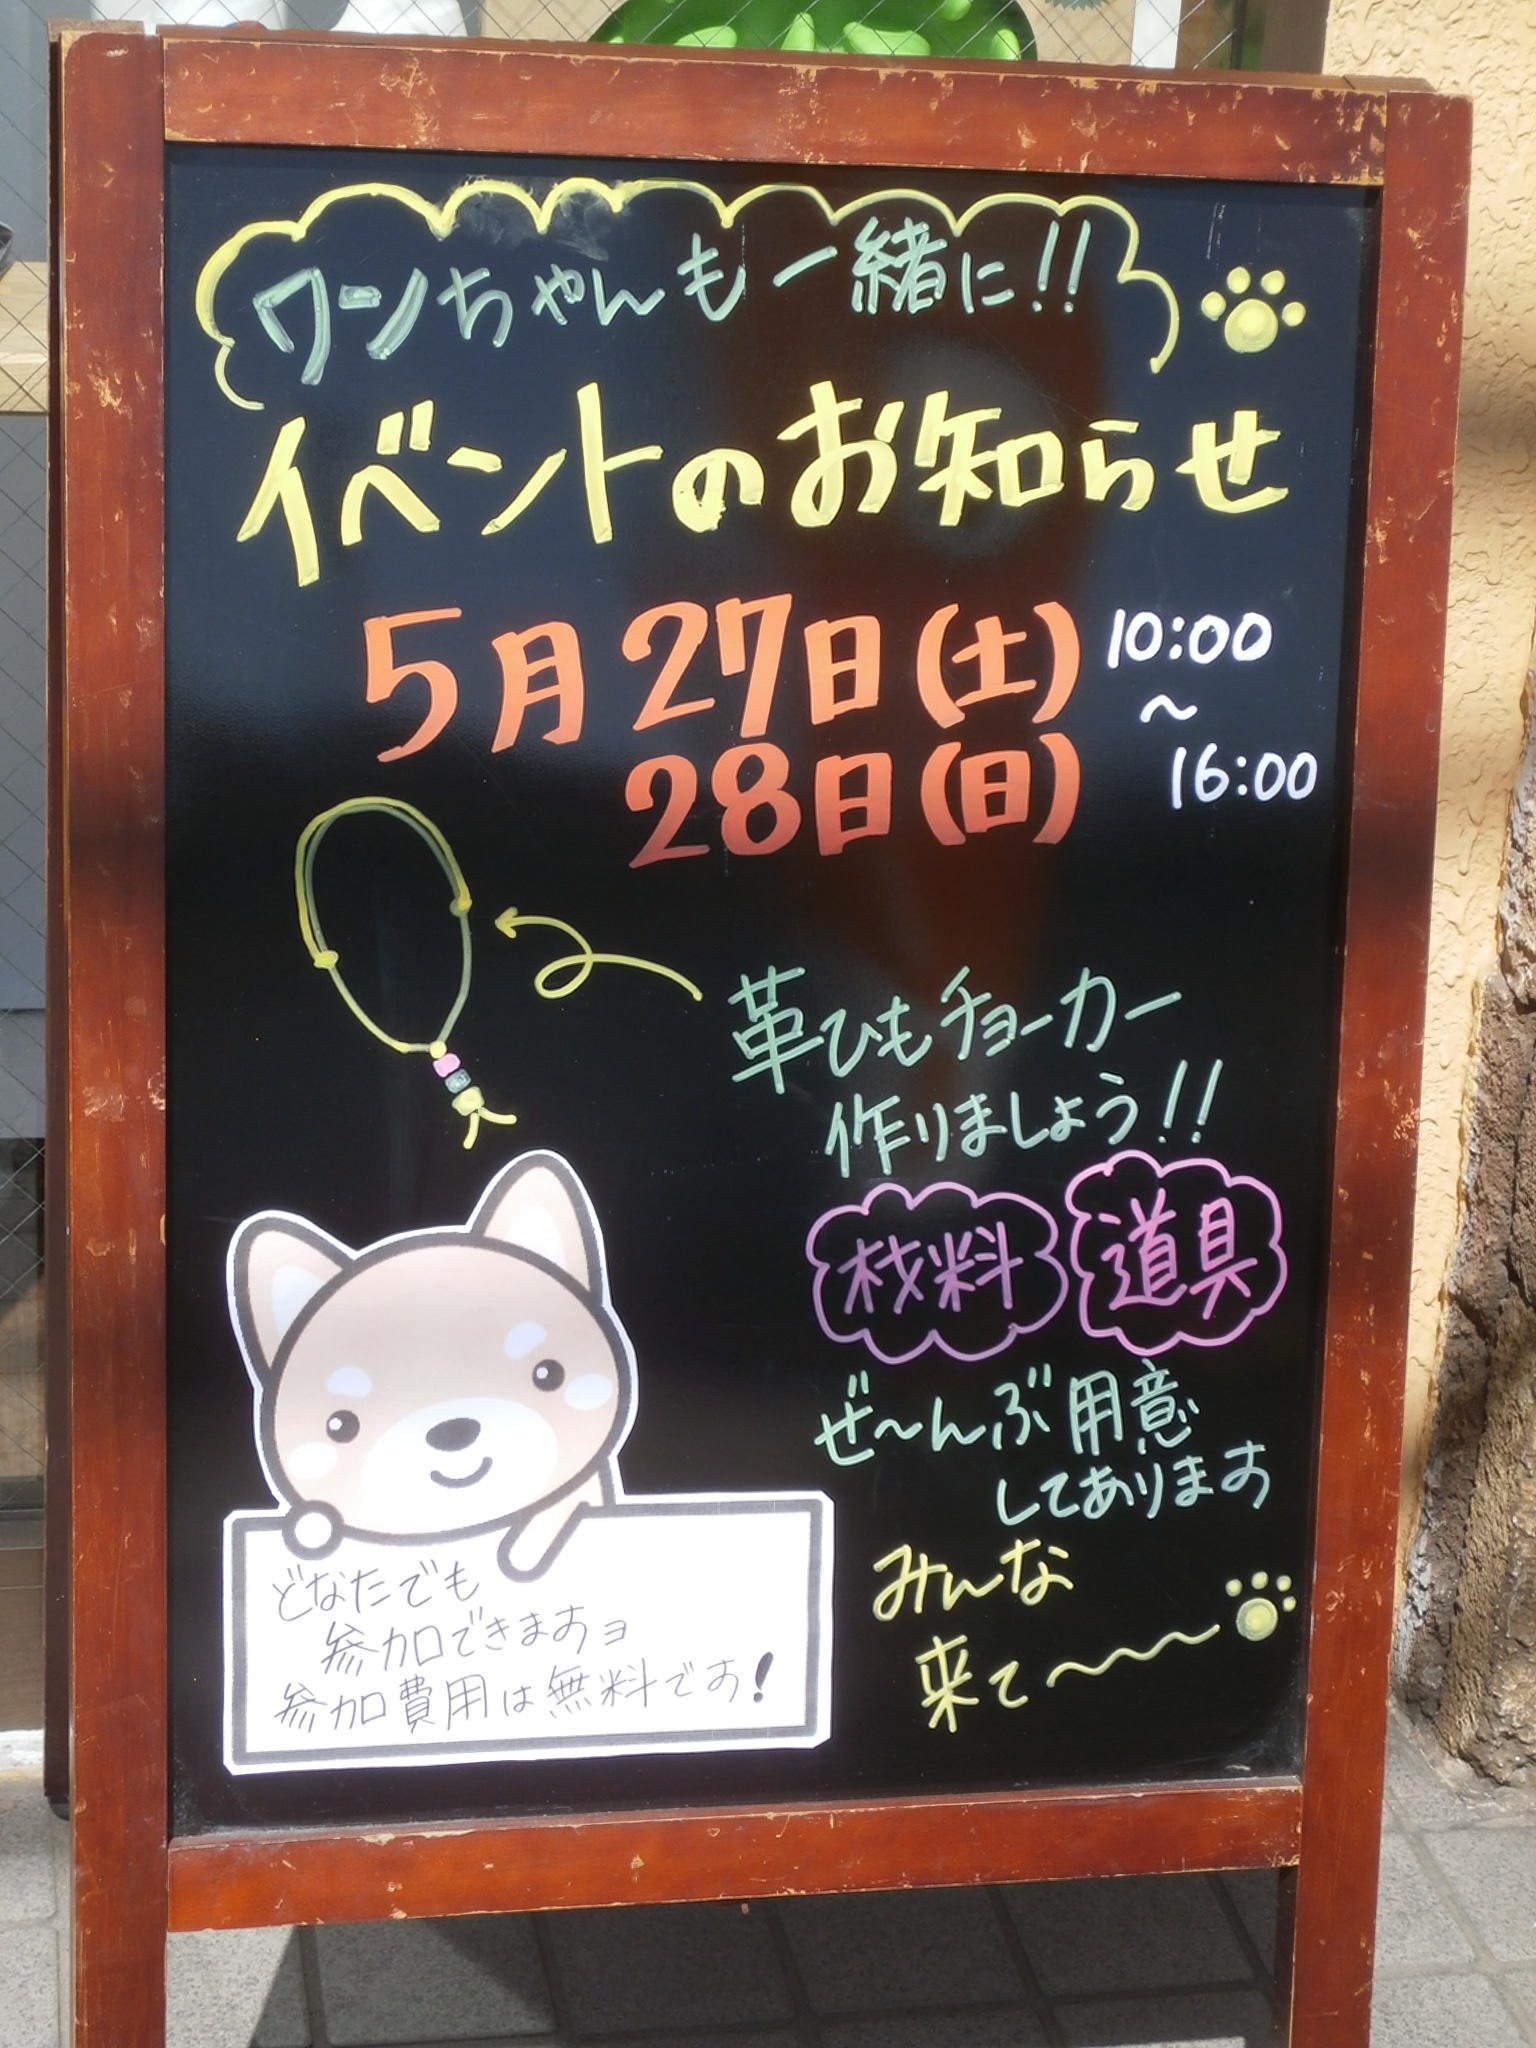 ワンちゃんも一緒に!!
イベントのお知らせ
5月27日(土) 10:00
～
28日(日) 16:00
革ひもチョーカー
作りましょう!!
材料 道具
ぜ～んぶ用意
してあります
みんな
来て～～～
どなたでも
参加できますョ
参加費用は無料です!